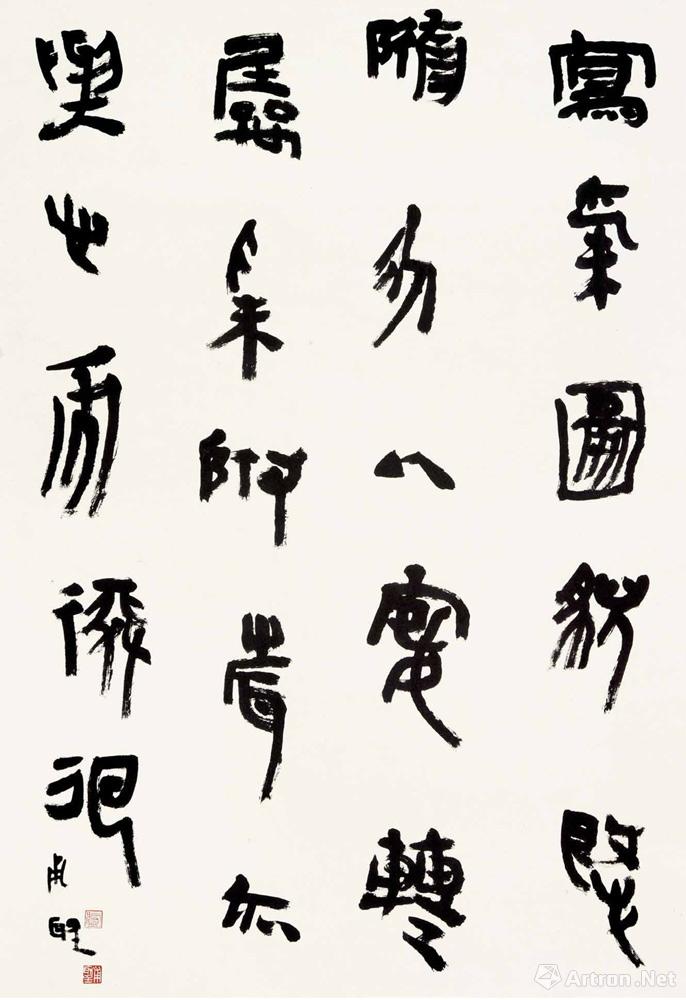 寫氣圖貌既
隨物以宛轉
屬采附聲亦
與心而徘徊
Artron.Net